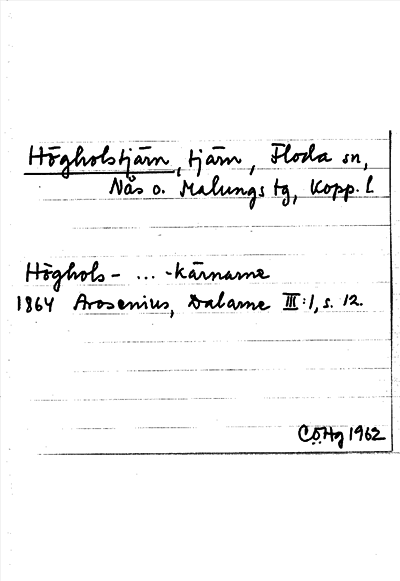 Högholstjärn, tjärn, Floda sn,
Näs o. Malungs tg, Kopp. l
Höghols- ... -kärnarne
1864 Arosenius, Dalarne III:1, s. 12.
CÖHg 1962